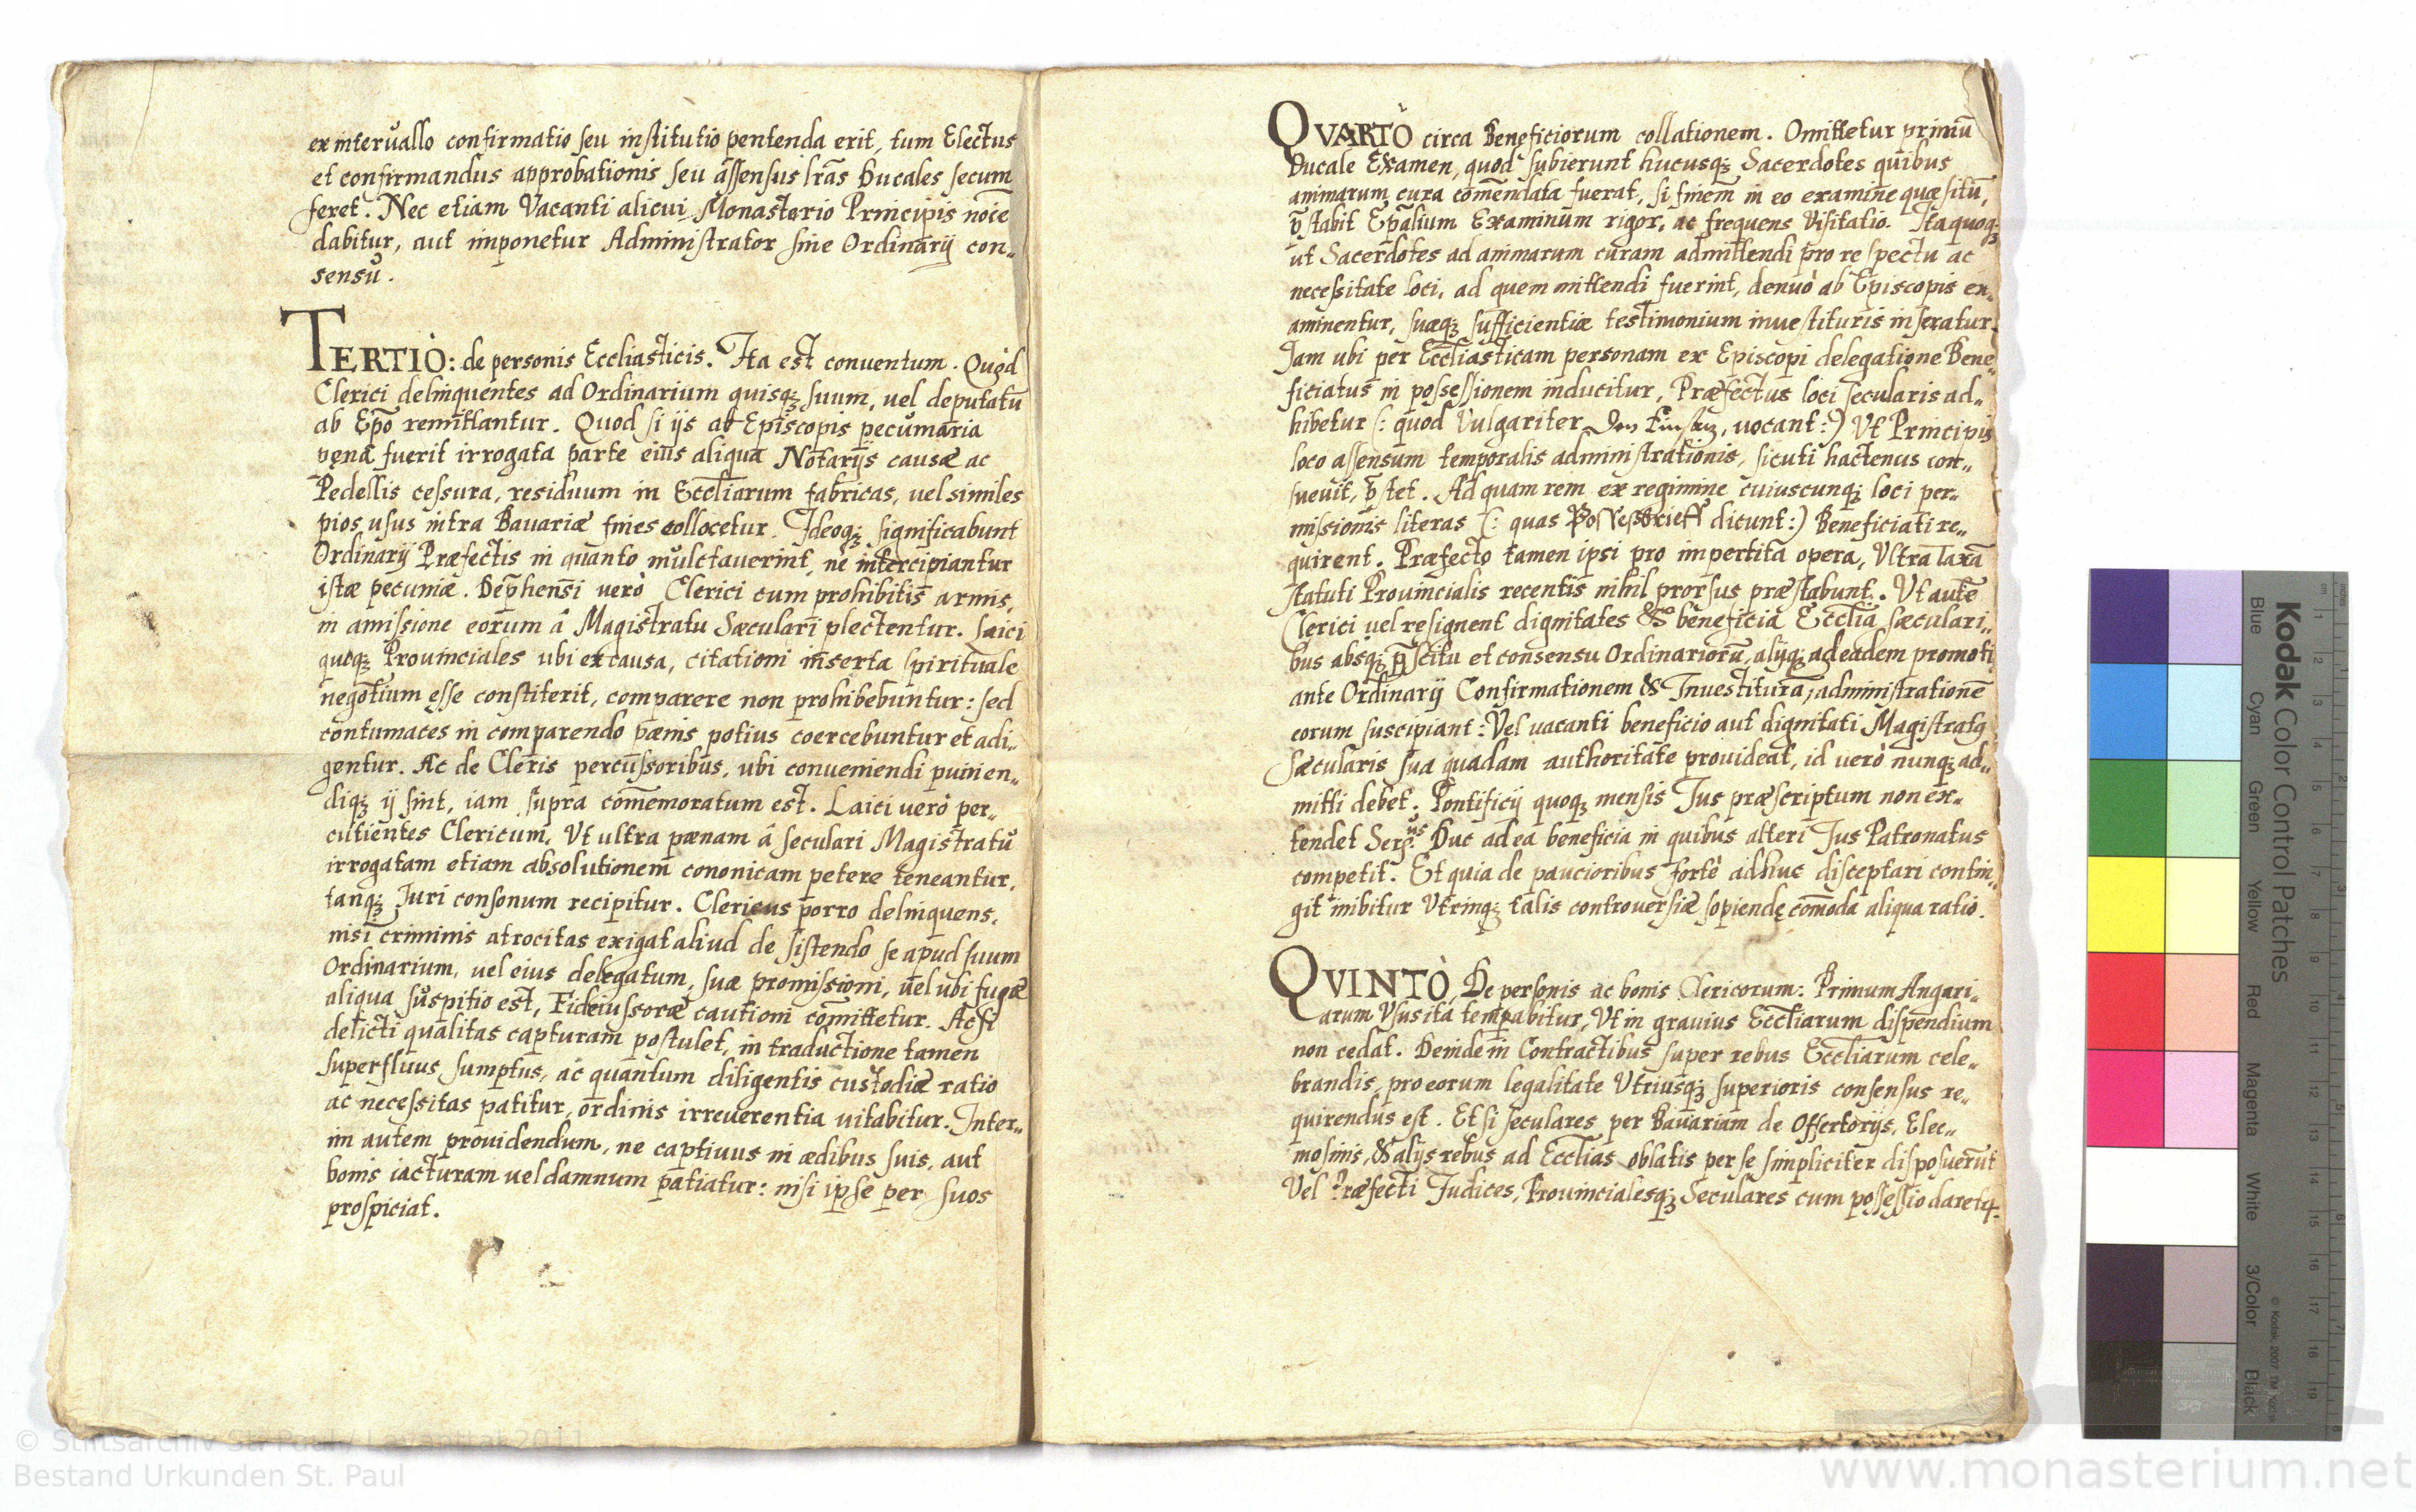 ex interuallo confirmatio seu institutio pentenda erit, tum Electus
et confirmandus approbationis seu assensus lr̃as Ducales secum
feret. Nec etiam Vacanti alicui Monasterio Principis noīe
dabitur, aut imponetur Administrator sine Ordinarij con„
sensu.
TERTIÒ: de personis Eccliasticis. Ita est conuentum. Quòd
Clerici delinquentes ad Ordinarium quisq; suum, uel deputatū
ab Ep̄o remittantur. Quod si ijs ab Episcopis pecumaria
pęna fuerit irrogata parte eius aliqua Notarijs causæ ac
Pedellis cessura, residuum in Eccliarum fabricas, uel similes
pios usus intra Bauariæ fines collocetur. Ideoq; significabunt
Ordinarij Præfectis in quanto mulctauerint, ne intercipiantur
istæ pecuniæ. Dep̄hensi uerò Clerici cum prohibitis armis,
in amissione eorum â Magistratu Sæculari plectentur. Laici
quoq; Prouinciales ubi ex causa, citationi inserta spirituale
negotium esse constiterit, comparere non prohibebuntur: sed
contumaces in comparendo pænis potius coercebuntur et adi„
gentur. Ac de Cleris percussoribus, ubi conueniendi punien„
diq; ij sint, iam supra com̄emoratum est. Laici uerò per„
cutientes Clericum, Vt ultra pænam â seculari Magistratu
irrogatam etiam absolutionem cononicam petere teneantur,
tanq; Iuri consonum recipitur. Clericus porro delinquens,
nisi criminis atrocitas exigat aliud de sistendo se apud suum
Ordinarium, uel eius delegatum, suæ promissioni, uel ubi fugæ
aliqua suspitio est, Fideiussoræ cautioni com̄ittetur. Ac si
delicti qualitas capturam postulet, in traductione tamen
superfluus sumptus, ac quantum diligentis custodiæ ratio
ac necessitas patitur, ordinis irreuerentia uitabitur. Inter„
im autem prouidendum, ne captiuus in ædibus suis, aut
bonis iacturam uel damnum patiatur: nisi ipse per suos
prospiciat.
QVARTÒ circa Beneficiorum collationem. Omittetur primū
Ducale Examen, quod subierunt hucusq; Sacerdotes quibus
animarum cura com̄endata fuerat, si finem in eo examine quæsitū,
p̄stabit Ep̄alium Examinum rigor, ac frequens Visitatio. Ita quoq;
ut Sacerdotes ad animarum curam admittendi pro respectu ac
necessitate loci, ad quem mittendi fuerint, denuò ab Episcopis ex„
aminentur, suæq; sufficientiæ testimonium inuestituris inseratur.
Iam ubi per Eccliasticam personam ex Episcopi delegatione Bene„
ficiatus in possessionem inducitur, Præfectus loci secularis ad„
hibetur (: quod Vulgariter uocant:) Vt Principis
loco assensum temporalis administrationis, sicuti hactenus con„
sueuit, p̄stet. Ad quam rem ex regimine cuiuscunq; loci per„
missionis literas (: quas Possessbrieff dicunt:) Beneficiati re„
quirent. Præfecto tamen ipsi pro impertita opera, Vltra Taxā
statuti Prouincialis recentis nihil prorsus præstabunt. Vt autē
Clerici uel resignent dignitates & beneficia Ecclia sæculari„
bus absq; p̄scitu et consensu Ordinariorū, alijq; ad eadem promoti
ante Ordinarij Confirmationem & Inuestiturā, administrationē
eorum suscipiant: Vel uacanti beneficio aut dignitati Magistratq
Sæcularis sua quadam authoritate prouideat, id uerò nunq; ad„
mitti debet. Pontificij quoq; mensis Ius præscriptum non ex„
tendet Serus Dux ad ea beneficia in quibus alteri Ius Patronatus
competit. Et quia de paucioribus fortè adhuc disceptari contin„
git inibitur Vtrinq; talis controuersiæ sopiendę com̄oda aliqua ratio.
QVINTÒ, De personis ac bonis Clericorum: Primum Angari„
arum Vsus ita temp̄abitur, Vt in grauius Eccliarum dispendium
non cedat. Deinde in Contractibus super rebus Eccliarum cele„
brandis, pro eorum legalitate Vtriusq; superioris consensus re„
quirendus est. Et si seculares per Bauariam de Offertorijs, Elec„
mosinis, & alijs rebus ad Ecclias oblatis per se simpliciter disposuerūt
Vel Præfecti Iudices, Prouincialesq; Seculares cum possessio daretq.
© Stiftsarchiv St. Paul / Lavanttal 2011
Bestand Urkunden St. Paul
www.monasterium.net
Kodak Color Control Patches
Blue Cyan Green Yellow Red Magenta White 3/Color Black
© Kodak, 2007 TM Kodak
cm 1 2 3 4 5 6 7 8 9 10 11 12 13 14 15 16 17 18 19
inches 1 2 3 4 5 6 7 8